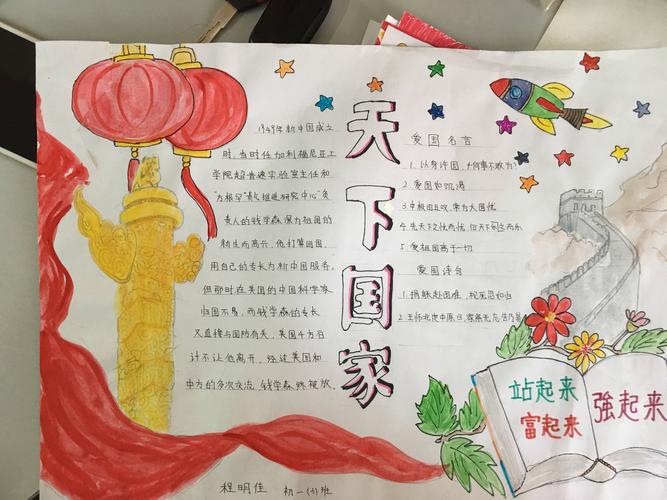 天下国家
1949年新中国成立
时,当时任加利福尼亚工
学院超音速实验室主任和
"古根罕"喷气推进研究中心"负
责人的钱学森深为祖国的
新生而高兴,他打算回国,
用自己的专长为新中国服务。
但那时在美国的中国科学家
归国不易,而钱学森的专长
又直接与国防有关,美国千方百
计不让他离开,经过美国和
中方的多次交涉,钱学森终被放。
爱国名言
1. 以身许国,何事不敢为?
2. 爱国如饥渴
3. 位卑
4. 先天下之忧而忧,后天下之乐而乐
5. 爱祖国高于一切
爱国诗句
1. 捐躯赴国难,视死忽如归
2. 王师北定中原日,家祭无忘告乃翁
站起来
富起来
強起来
程明佳 初一(3)班